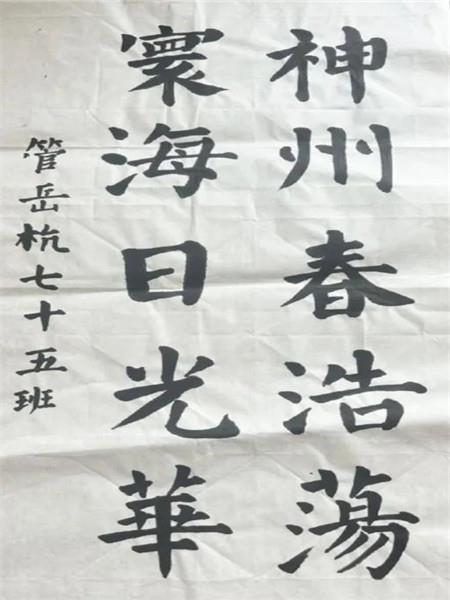 神州春浩蕩
寰海日光華
管岳杭七十五班